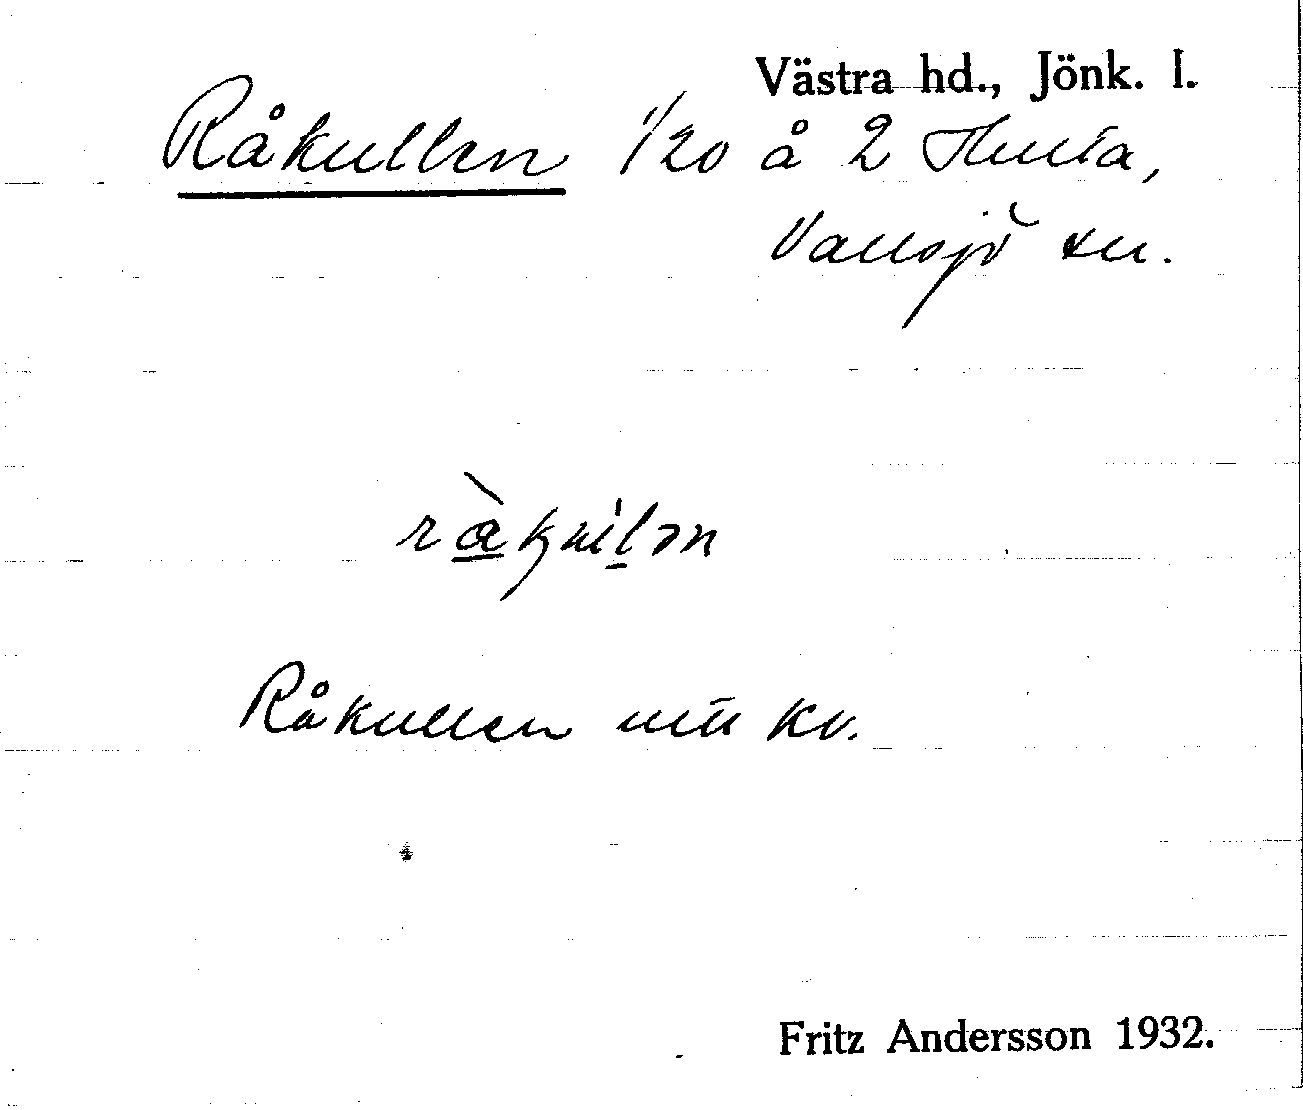 Västra hd., Jönk. l.
Råkullen 1/20 å 2 Hulta,
Vallsjö sn.
Råkullen kv.
Fritz Andersson 1932.